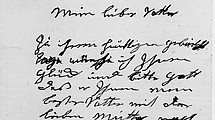 Mein liber Vatter
Zu ihrem heüttigen geburhst
tage wünsche ich Ihnen
Glück und bitte Gott
das er Ihnen mein
bester Vatter mit der
lieben Mutter noch